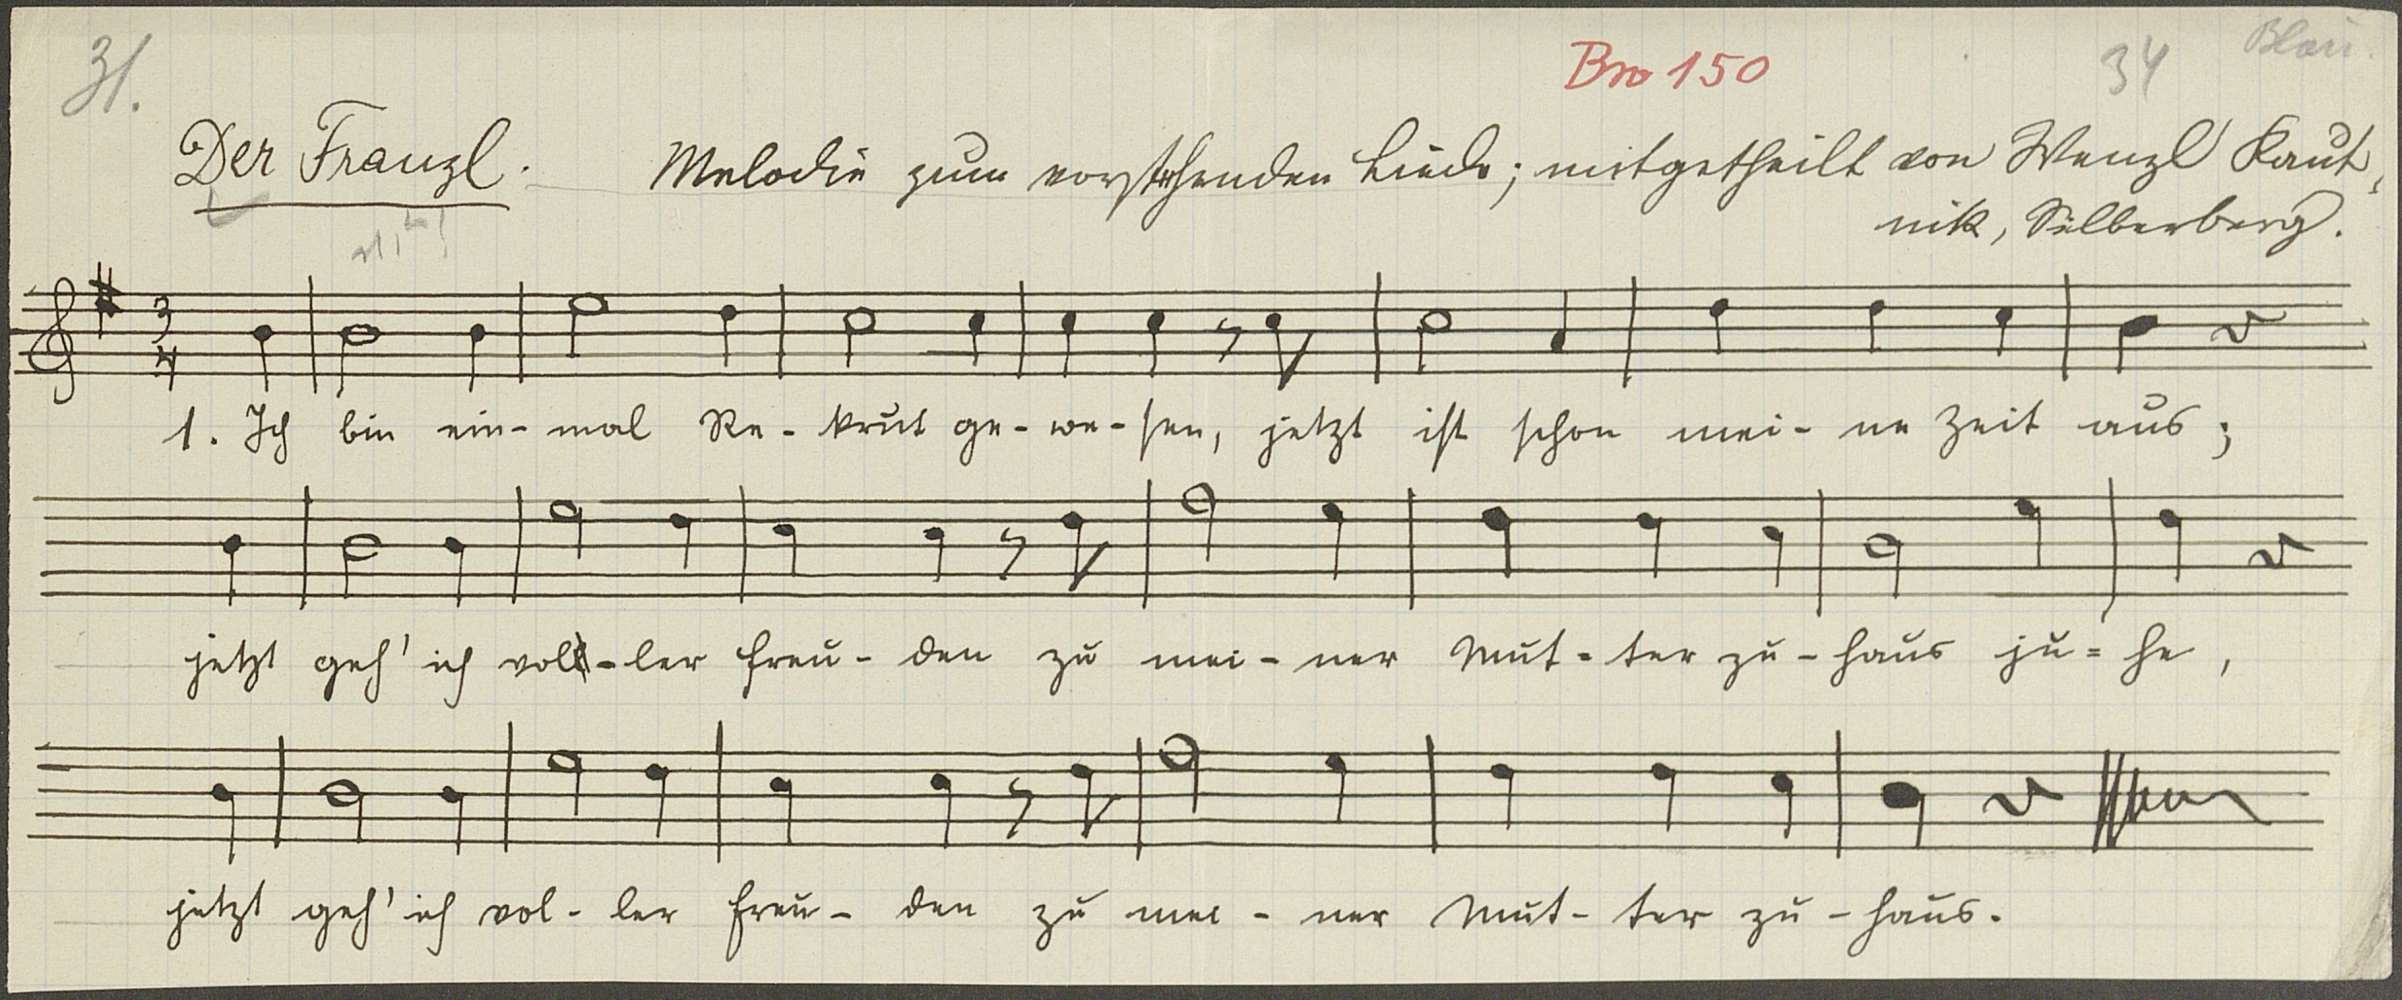 31.
Bro 150
34
Blau.
Der Franzl.
Melodie zum vorstehenden Liede; mitgetheilt von Wenzl Kaut,
nik, Silberberg.
3
4
1. Ich bin ein- mal Re- krut ge- we- sen, jetzt ist schon mei- ne Zeit aus;
jetzt geh' ich vol- ler Freu- den zu mei- ner Mut- ter zu- haus ju- he,
jetzt geh' ich vol- ler Freu- den zu mei- ner Mut- ter zu- haus.